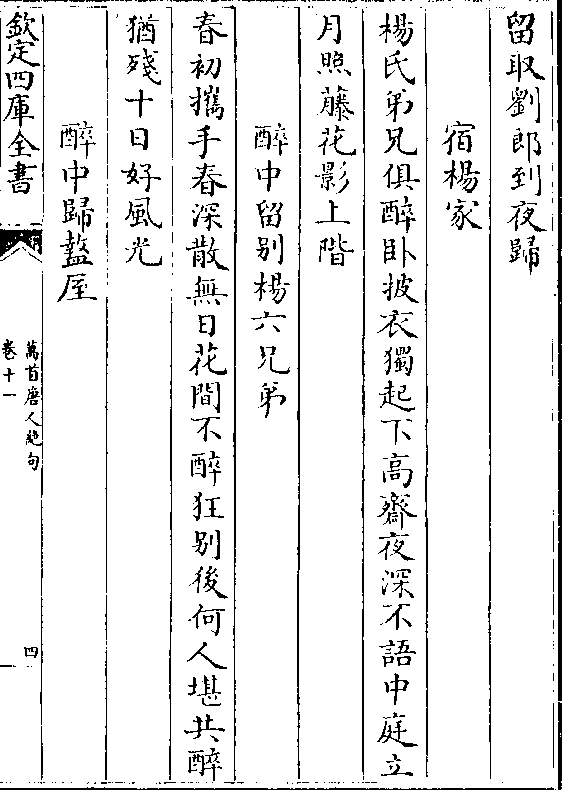 留取劉郎到夜歸
宿楊家
楊氏弟兄俱醉卧披衣獨起下高齋夜深不語中庭立
月照藤花影上階
醉中留别楊六兄弟
春初攜手春深散無日花間不醉狂别後何人堪共醉
猶殘十日好風光
醉中歸盩厔
欽定四庫全書
萬首唐人絶句
卷十一
四